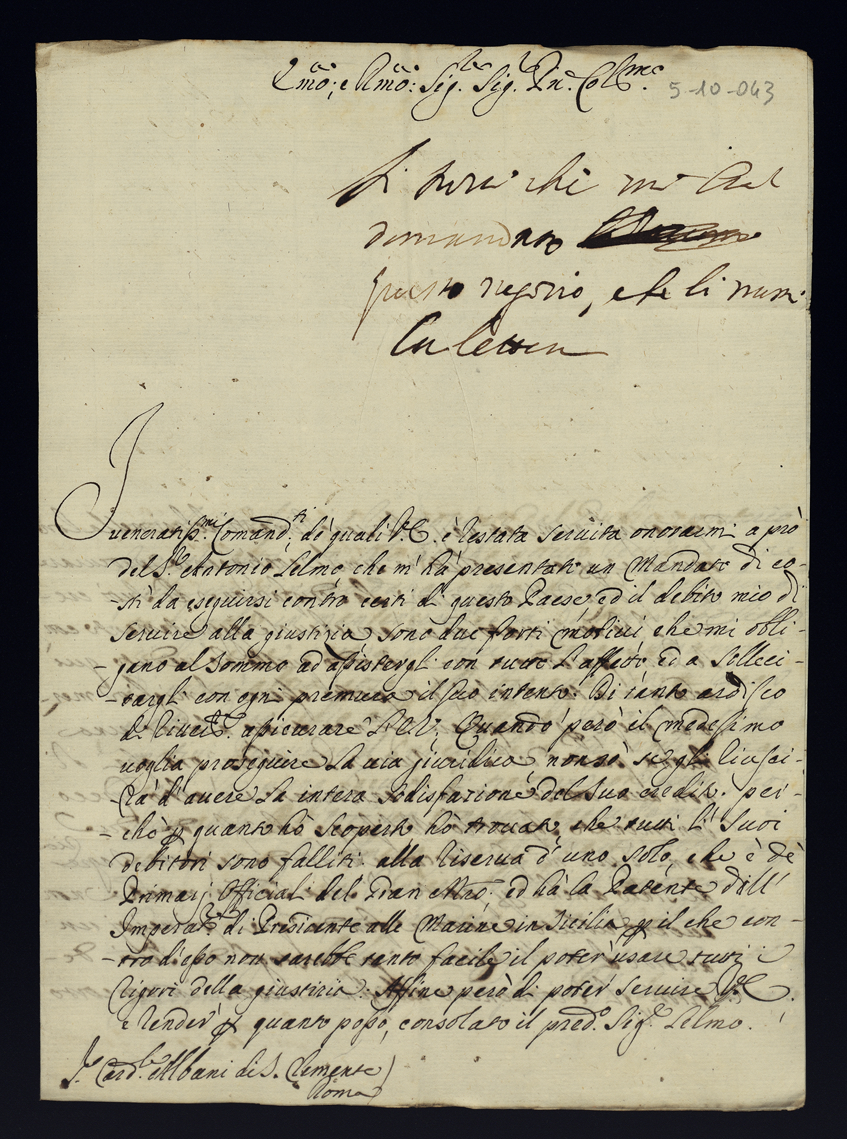 Emo: e Rmo: Sig.re Sig.r Pne. Colmo.
5-10-043
Si scriva che mi
domandano
questo negozio, e che li mandi
la lettera
I
veneratiss.mi Comand.ti de' quali V.E. è restata servita onorarmi a prò
del S.r Antonio Lelmo che m' hà presentati un Mandato di co-
-stì da eseguirsi contro certi di questo Paese, ed il debito mio di
servire alla giustizia sono due forti motivi che mi obli-
-gano al sommo ad assistergli con tutto l'affetto, ed a solleci-
-targli con ogni premura il suo intento. Di tanto ardisco
assicurare l'E.V. Quando però il medesimo
voglia proseguire la via giuridica non sò se gli riusci-
-rà d'avere la intera sodisfazione del Suo credito. per-
-chè p quanto hò scoperto hò trovato che tutti li Suoi
debitori sono falliti alla riserva d'uno solo, che è dè
Primarj Official del Gran Mro, ed hà la Patente dall'
Imperat.re di Presidente alle Marine in Sicilia p il che con-
-tro di esso non sarebbe tanto facile il poter usare tutti i
rigori della giustizia. Affine però di poter servire V.E.
e render p quanto posso, consolato il pred.o Sig.r Lelmo.
S.r Card.le Albani di S. Clemente)
Roma